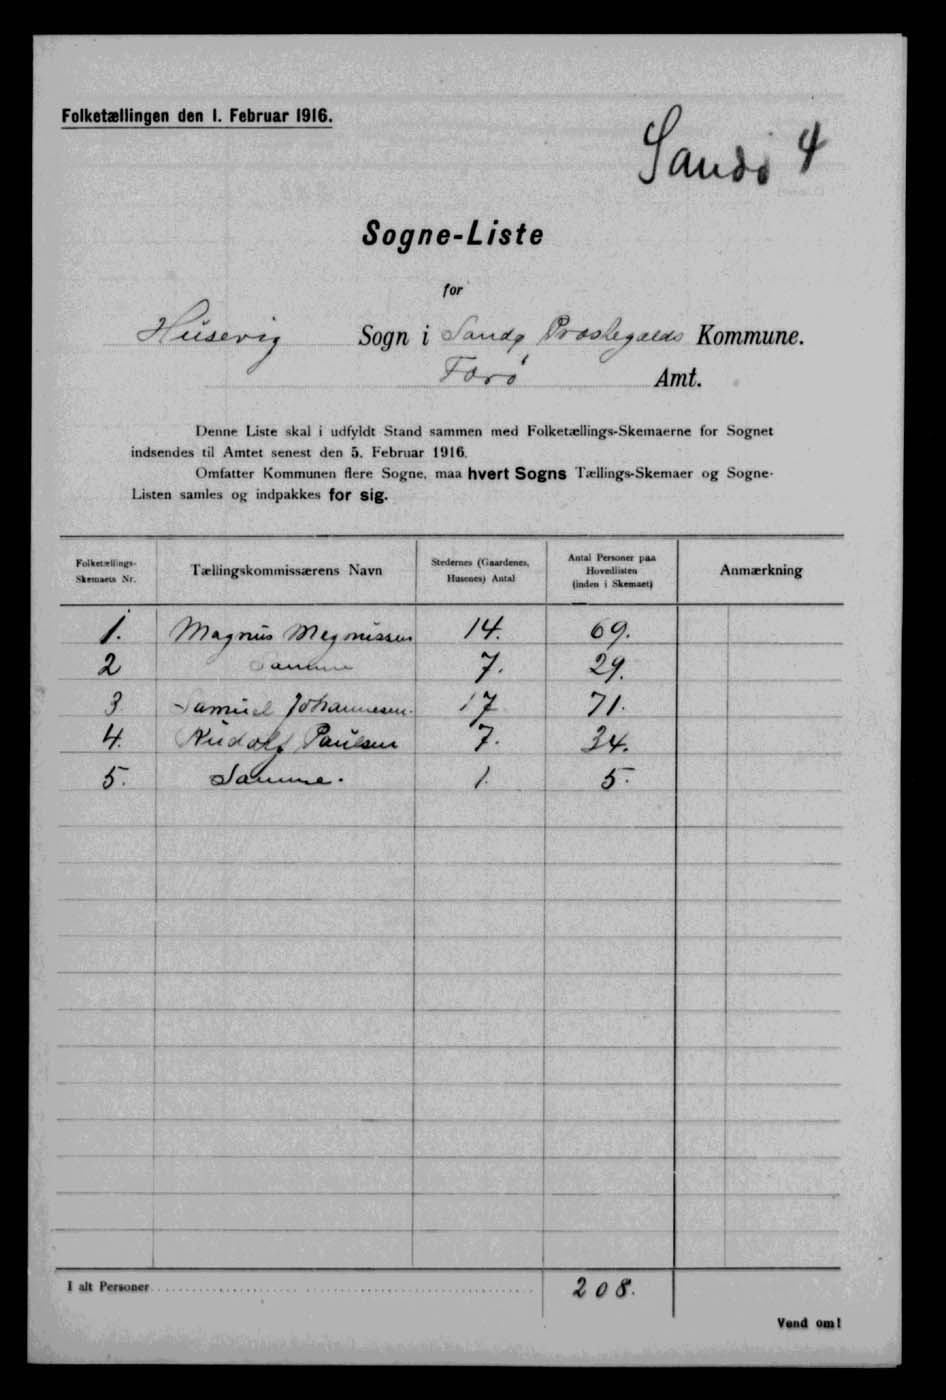 Folketællingen den 1. Februar 1916.
Sandø 4
Sogne-Liste
for
Húsevig Sogn i Sandø Præstegælds Kommune.
Færø Amt.
Denne Liste skal i udfyldt Stand sammen med Folketællings-Skemaerne for Sognet
indsendes til Amtet senest den 5. Februar 1916.
Omfatter Kommunen flere Sogne, maa hvert Sogns Tællings-Skemaer og Sogne-
Listen samles og indpakkes for sig.
Folketællings-
Skemaets Nr.
Tællingskommissærens Navn
Stedernes (Gaardenes,
Husenes) Antal
Antal Personer paa
Hovedlisten
(inden i Skemaet)
Anmærkning
1. Magnus Magnussen 14. 69.
2 Samme 7. 29.
3 Samuel Johannesen. 17 71.
4. Rudolf Paulsen 7. 34.
5. Samme. 1. 5.
I alt Personer 208.
Vend om!